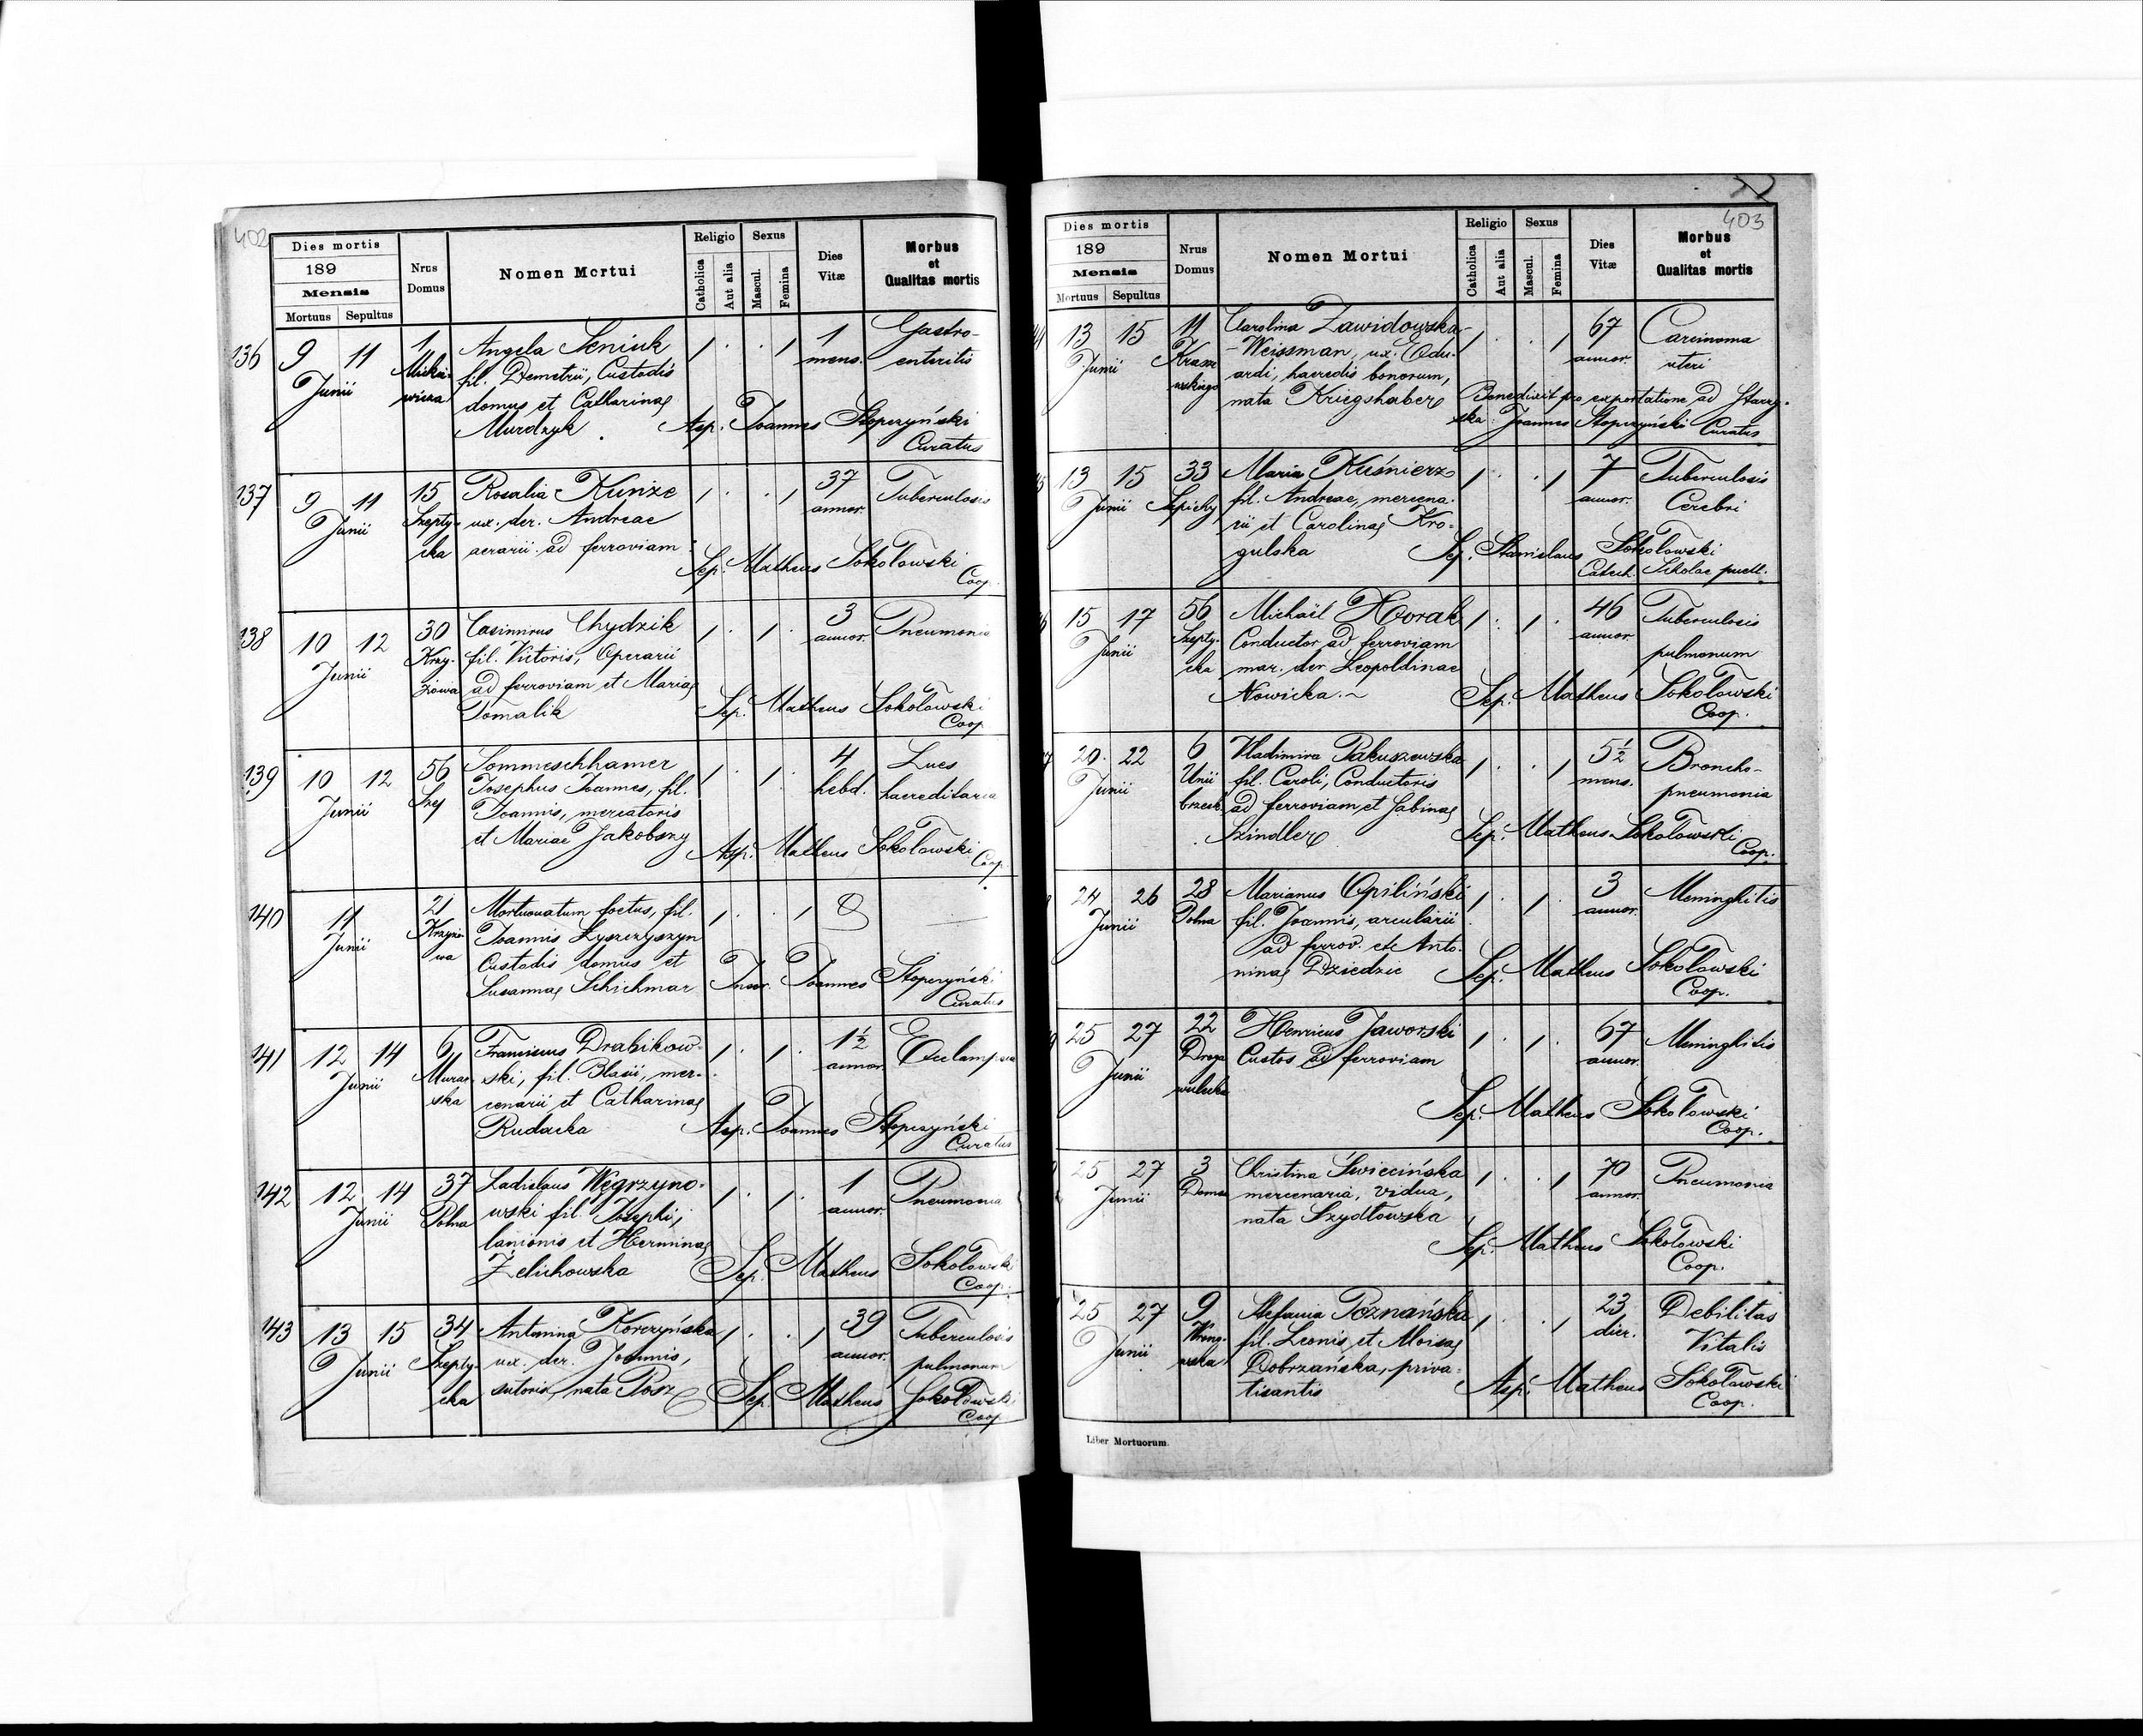 402
Dies mortis
189
Mensis
Mortuus Sepultus
Nrus Domus
Nomen Mortui
Religio
Catholica
Aut alia
Sexus
Mascul.
Femina
Dies Vitæ
Morbus et Qualitas mortis
136 9 11 1 Angela Seniuk 1 Gastro-
Junii Mickie- fil. Demetrii, Custodis mens. enteritis
wicza domus et Catharinae
Murdzyk Asp. Joannes Stopczyński
Curatus
137 9 11 15 Rosalia Kunze 37 Tuberculosis
Junii Szepty- ux. der. Andreae annor.
cka aerarii ad ferroviam
Sep. Matheus Sokołowski
Coop.
138 10 12 30 Casimirus Chydzik 3 Pneumonia
Junii Krzy- fil. Victoris, Operarii annor.
żowa ad ferroviam et Mariae
Tomalik Sep. Matheus Sokołowski
Coop
139 10 12 56 Sommeschhamer 4 Lues
Junii Szep Josephus Joannes, fil. hebd. haereditaria
Joannis, mercatoris
et Mariae Jakobszy Asp. Matheus Sokołowski
Coop.
140 11 21 Mortuonatum foetus, fil.
Junii Krzyżo- Joannis Łyszczyszyn
wa Custodis domus et
Susannae Schichmar Joannes Stopczyński
Curatus
141 12 14 6 Franciscus Drabikow- 1½ Eclampsia
Junii Murar- ski, fil. Blasii, mer- annor.
ska cenarii et Catharinae
Rudacka Asp. Joannes Stopczyński
Curatus
142 12 14 37 Ladislaus Węgrzyno- 1 Pneumonia
Junii Polna wski fil. Josephi, annor.
lanionis et Herminae
Żelichowska Sep. Matheus Sokołowski
Coop.
143 13 15 34 Antonina Korczyńska 39 Tuberculosis
Junii Szepty- ux. der. Joannis, annor. pulmonum
cka sutoris, nata Posz Sep. Matheus Sokołowski
Coop
403
Dies mortis
189
Mensis
Mortuus Sepultus
Nrus Domus
Nomen Mortui
Religio
Catholica
Aut alia
Sexus
Mascul.
Femina
Dies Vitæ
Morbus et Qualitas mortis
13 15 11 Carolina Zawidowska- 67 Carcinoma
Junii Krasze- -Weissman, ux. Edu- annor. uteri
wskiego ardi, haeredis bonorum,
nata Kriegshaber Benedixit pro exportatione ad Starzy-
ska Joannes Stopczyński Curatus
13 15 33 Maria Kuśnierz 7 Tuberculosis
Junii Sapiehy fil. Andreae, mercena- annor. Cerebri
rii et Carolinae Kro-
gulska Sep. Stanislaus Sokołowski
Catech. Scholae puell.
15 17 56 Michaël Horak 46 Tuberculosis
Junii Szepty- Conductor ad ferroviam annor. pulmonum
cka mar. der. Leopoldinae
Nowicka Sep. Matheus Sokołowski
Coop.
20 22 6 Vladimira Pakuszewska 5½ Broncho-
Junii Unii fil. Caroli, Conductoris mens. pneumonia
brzesk. ad ferroviam et Sabinae
Szindler Sep. Matheus Sokołowski
Coop.
24 26 28 Marianus Opiliński 3 Meninghitis
Junii Polna fil. Joannis, arcularii annor.
ad ferrov. et Anto-
ninae Dziedzic Sep. Matheus Sokołowski
Coop.
25 27 22 Henricus Jaworski 67 Meninghitis
Junii Droga Custos ad ferroviam annor.
wulecka
Sep. Matheus Sokołowski
Coop.
25 27 3 Christina Swiecińska 70 Pneumonia
Junii mercenaria, vidua, annor.
nata Szydłowska
Sep. Matheus Sokołowski
Coop.
25 27 9 Stefania Poznańska 23 Debilitas
Junii fil. Leonis et Moisae dier. Vitalis
Dobrzańska, priva-
tisantis Asp. Matheus Sokołowski
Coop.
Liber Mortuorum.